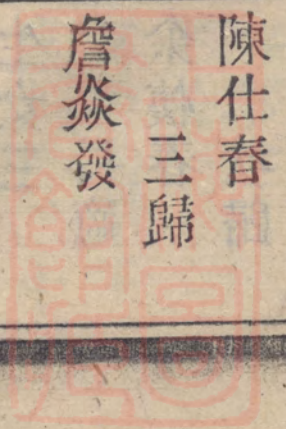 陳仕春
三歸
詹焱發